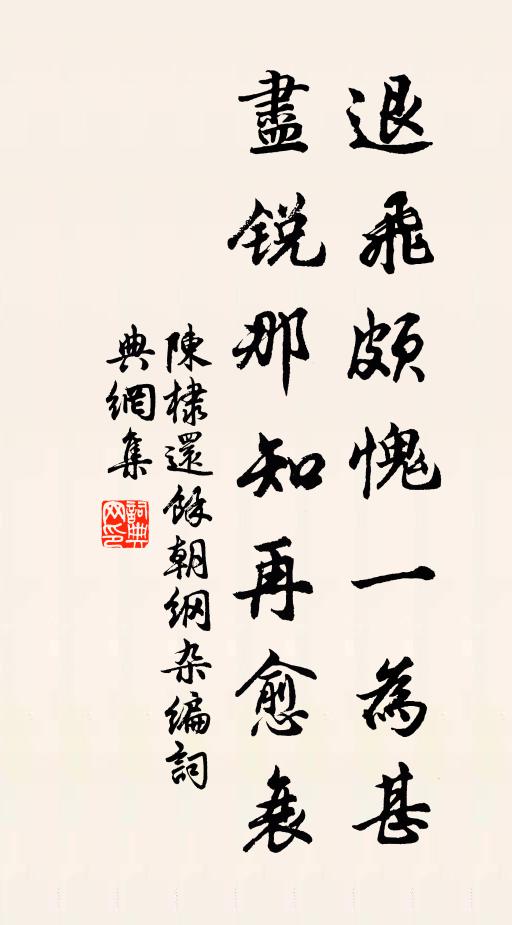 退飛頗愧一為甚
盡銳那知再愈衰
陳棣還餘朝綱杂编詞
典網集
詞典网印